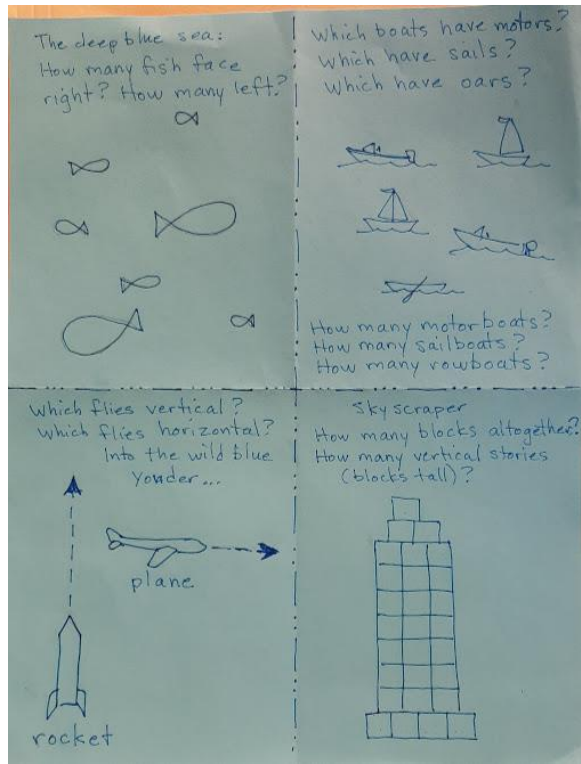 The deep blue sea:
How many fish face
right? How many left?
Which boats have motors?
Which have sails?
Which have oars?
How many motorboats?
How many sailboats?
How many rowboats?
Which flies vertical?
Which flies horizontal?
Into the wild blue
yonder...
plane
rocket
Skyscraper
How many blocks altogether?
How many vertical stories
(blocks tall)?